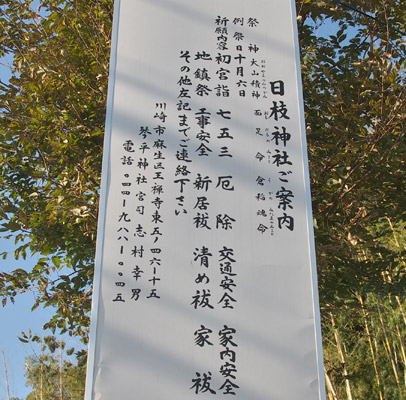 日枝神社ご案内
祭神 大山積神 面足命 倉稲魂命
例祭日十月六日
祈願内容 初宮詣 七五三 厄除 交通安全 家内安全
地鎮祭 工事安全 新居祓 清め祓 家祓
その他左記までご連絡下さい
川崎市麻生区王禅寺東五ノ四六ー十五
琴平神社宮司志村幸男
電話〇四四ー九八八ー〇〇四五